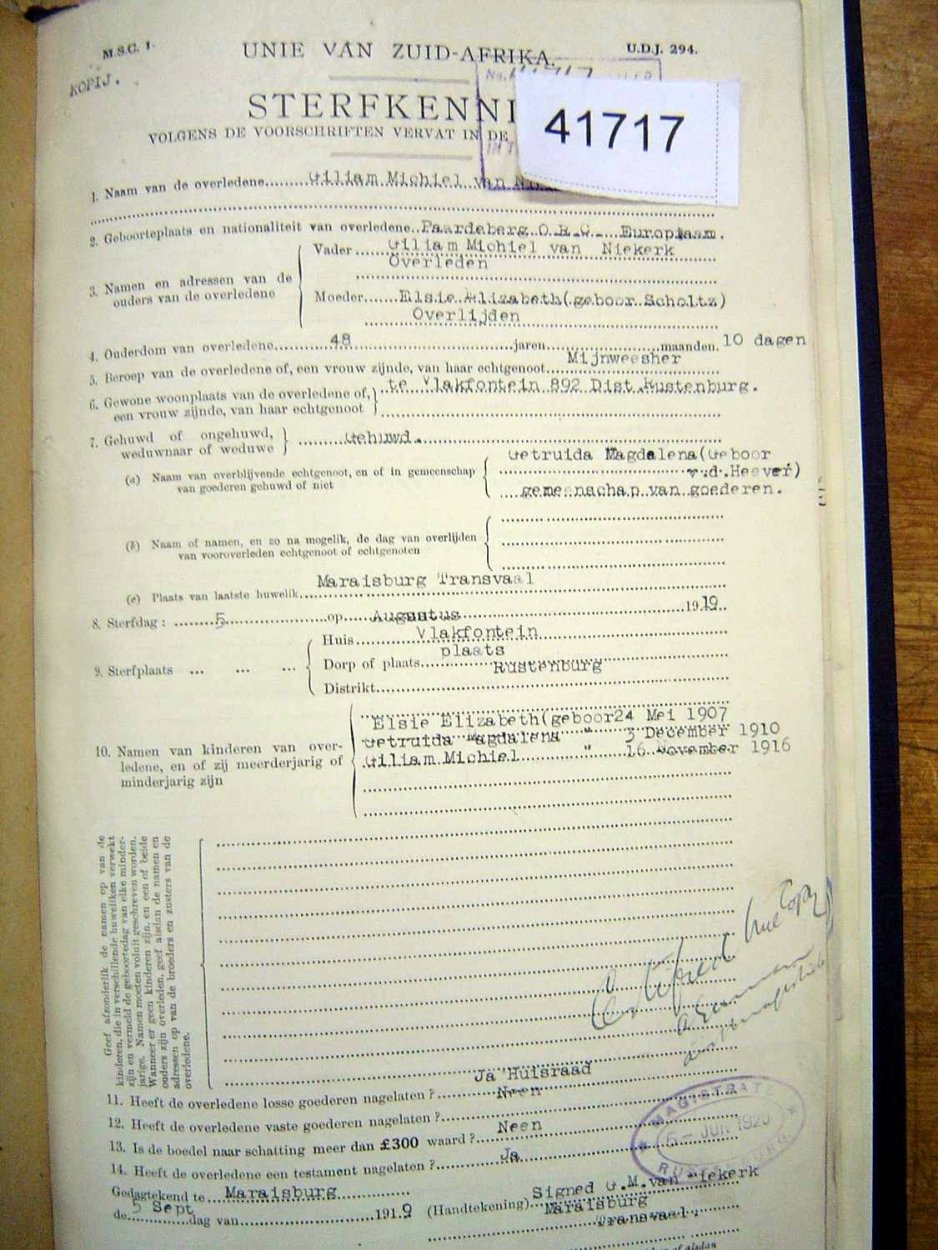 M.S.C. 1.
UNIE VAN ZUID-AFRIKA.
U.D.J. 294.
KOPIJ.
No. 41717
STERFKENNI
41717
VOLGENS DE VOORSCHRIFTEN VERVAT IN DE
1. Naam van de overledene......Giliam Michiel van
2. Geboorteplaats en nationaliteit van overledene..Paardeberg O.R.C. Europeaam.
3. Namen en adressen van de ouders van de overledene
Vader.....Giliam Michiel van Niekerk
Overleden
Moeder.....Elsie Elizabeth(geboor Scholtz)
Overlijden
4. Ouderdom van overledene.....48.....jaren.....maanden. 10 dagen
5. Beroep van de overledene of, een vrouw zijnde, van haar echtgenoot.....Mijnweesher
6. Gewone woonplaats van de overledene of, een vrouw zijnde, van haar echtgenoot
te Vlakfontein 892 Dist.Rustenburg.
7. Gehuwd of ongehuwd, weduwnaar of weduwe
Gehuwd.
(a) Naam van overblijvende echtgenoot, en of in gemeenschap van goederen gehuwd of niet
Getruida Magdalena(Geboor
v.d.Heever)
gemeenschap van goederen.
(b) Naam of namen, en zo na mogelik, de dag van overlijden van vooroverleden echtgenoot of echtgenoten
(c) Plaats van laatste huwelik.....Maraisburg Transvaal
8. Sterfdag : .....5.....op.....Augustus.....1919
9. Sterfplaats ... ... ...
Huis.....Vlakfontein
Dorp of plaats.....plaats
Distrikt.....Rustenburg
10. Namen van kinderen van overledene, en of zij meerderjarig of minderjarig zijn
Elsie Elizabeth(geboor24 Mei 1907
Getruida Magdalena " 3 December 1910
Giliam Michiel " 16 November 1916
Geef afzonderlik de namen op van de
kinderen, die in verschillende huweliken verwekt
zijn en vermeld de geboortedag van elke minder-
jarige. Namen moeten voluit geschreven worden.
Wanneer er geen kinderen zijn, en een of beide
ouders zijn overleden, geef alsdan de namen en
adressen op van de broeders en zusters van de
overledene.
Certified true copy
11. Heeft de overledene losse goederen nagelaten ?.....Ja Huisraad
12. Heeft de overledene vaste goederen nagelaten ?.....Neen
13. Is de boedel naar schatting meer dan £300 waard ?.....Neen
14. Heeft de overledene een testament nagelaten ?.....Ja
MAGISTRATE
6 - JUN 1920
RUSTENBURG
Gedagtekend te.....Maraisburg
de.....5 Sept.....dag van.....1919
(Handtekening)..Signed G.M.van Niekerk
Maraisburg
Transvaal.